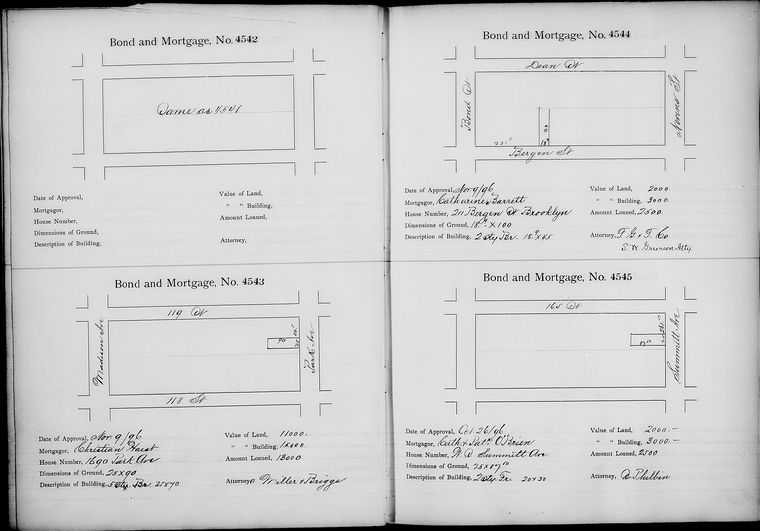 Bond and Mortgage, No. 4542
Same as 4541
Date of Approval,
Mortgagor,
House Number,
Dimensions of Ground,
Description of Building,
Value of Land,
" " Building,
Amount Loaned,
Attorney,
Bond and Mortgage, No. 4543
119 St
Madison Ave
Park Ave
90
118 St
Date of Approval, Nov 9/96
Mortgagor, Christian
House Number, 1690 Park Ave
Dimensions of Ground, 25 x 90
Description of Building, 5 sty Br. 25 x 70
Value of Land, 11000.
" " Building, 12000.
Amount Loaned, 13000
Attorney, Miller & Briggs
Bond and Mortgage, No. 4544
Dean St
Bond St
Nevins St
Bergen St
Date of Approval, Nov 9/96
Mortgagor, Catharine Barrett
House Number, 211 Bergen St Brooklyn
Dimensions of Ground, 18 x 100
Description of Building, 2 sty Br. 18 x 45
Value of Land, 2000.
" " Building, 3000.
Amount Loaned, 2500
Attorney, T. G. & T. Co
S. W. Atty
Bond and Mortgage, No. 4545
165 St
Summitt Ave
Date of Approval, Oct 26/96
Mortgagor, Cath & O'Brien
House Number, W. S Summitt Ave
Dimensions of Ground, 25 x 87
Description of Building, 2 sty Fr. 20 x 30
Value of Land, 2000.—
" " Building, 3000.—
Amount Loaned, 2500
Attorney, Philbin